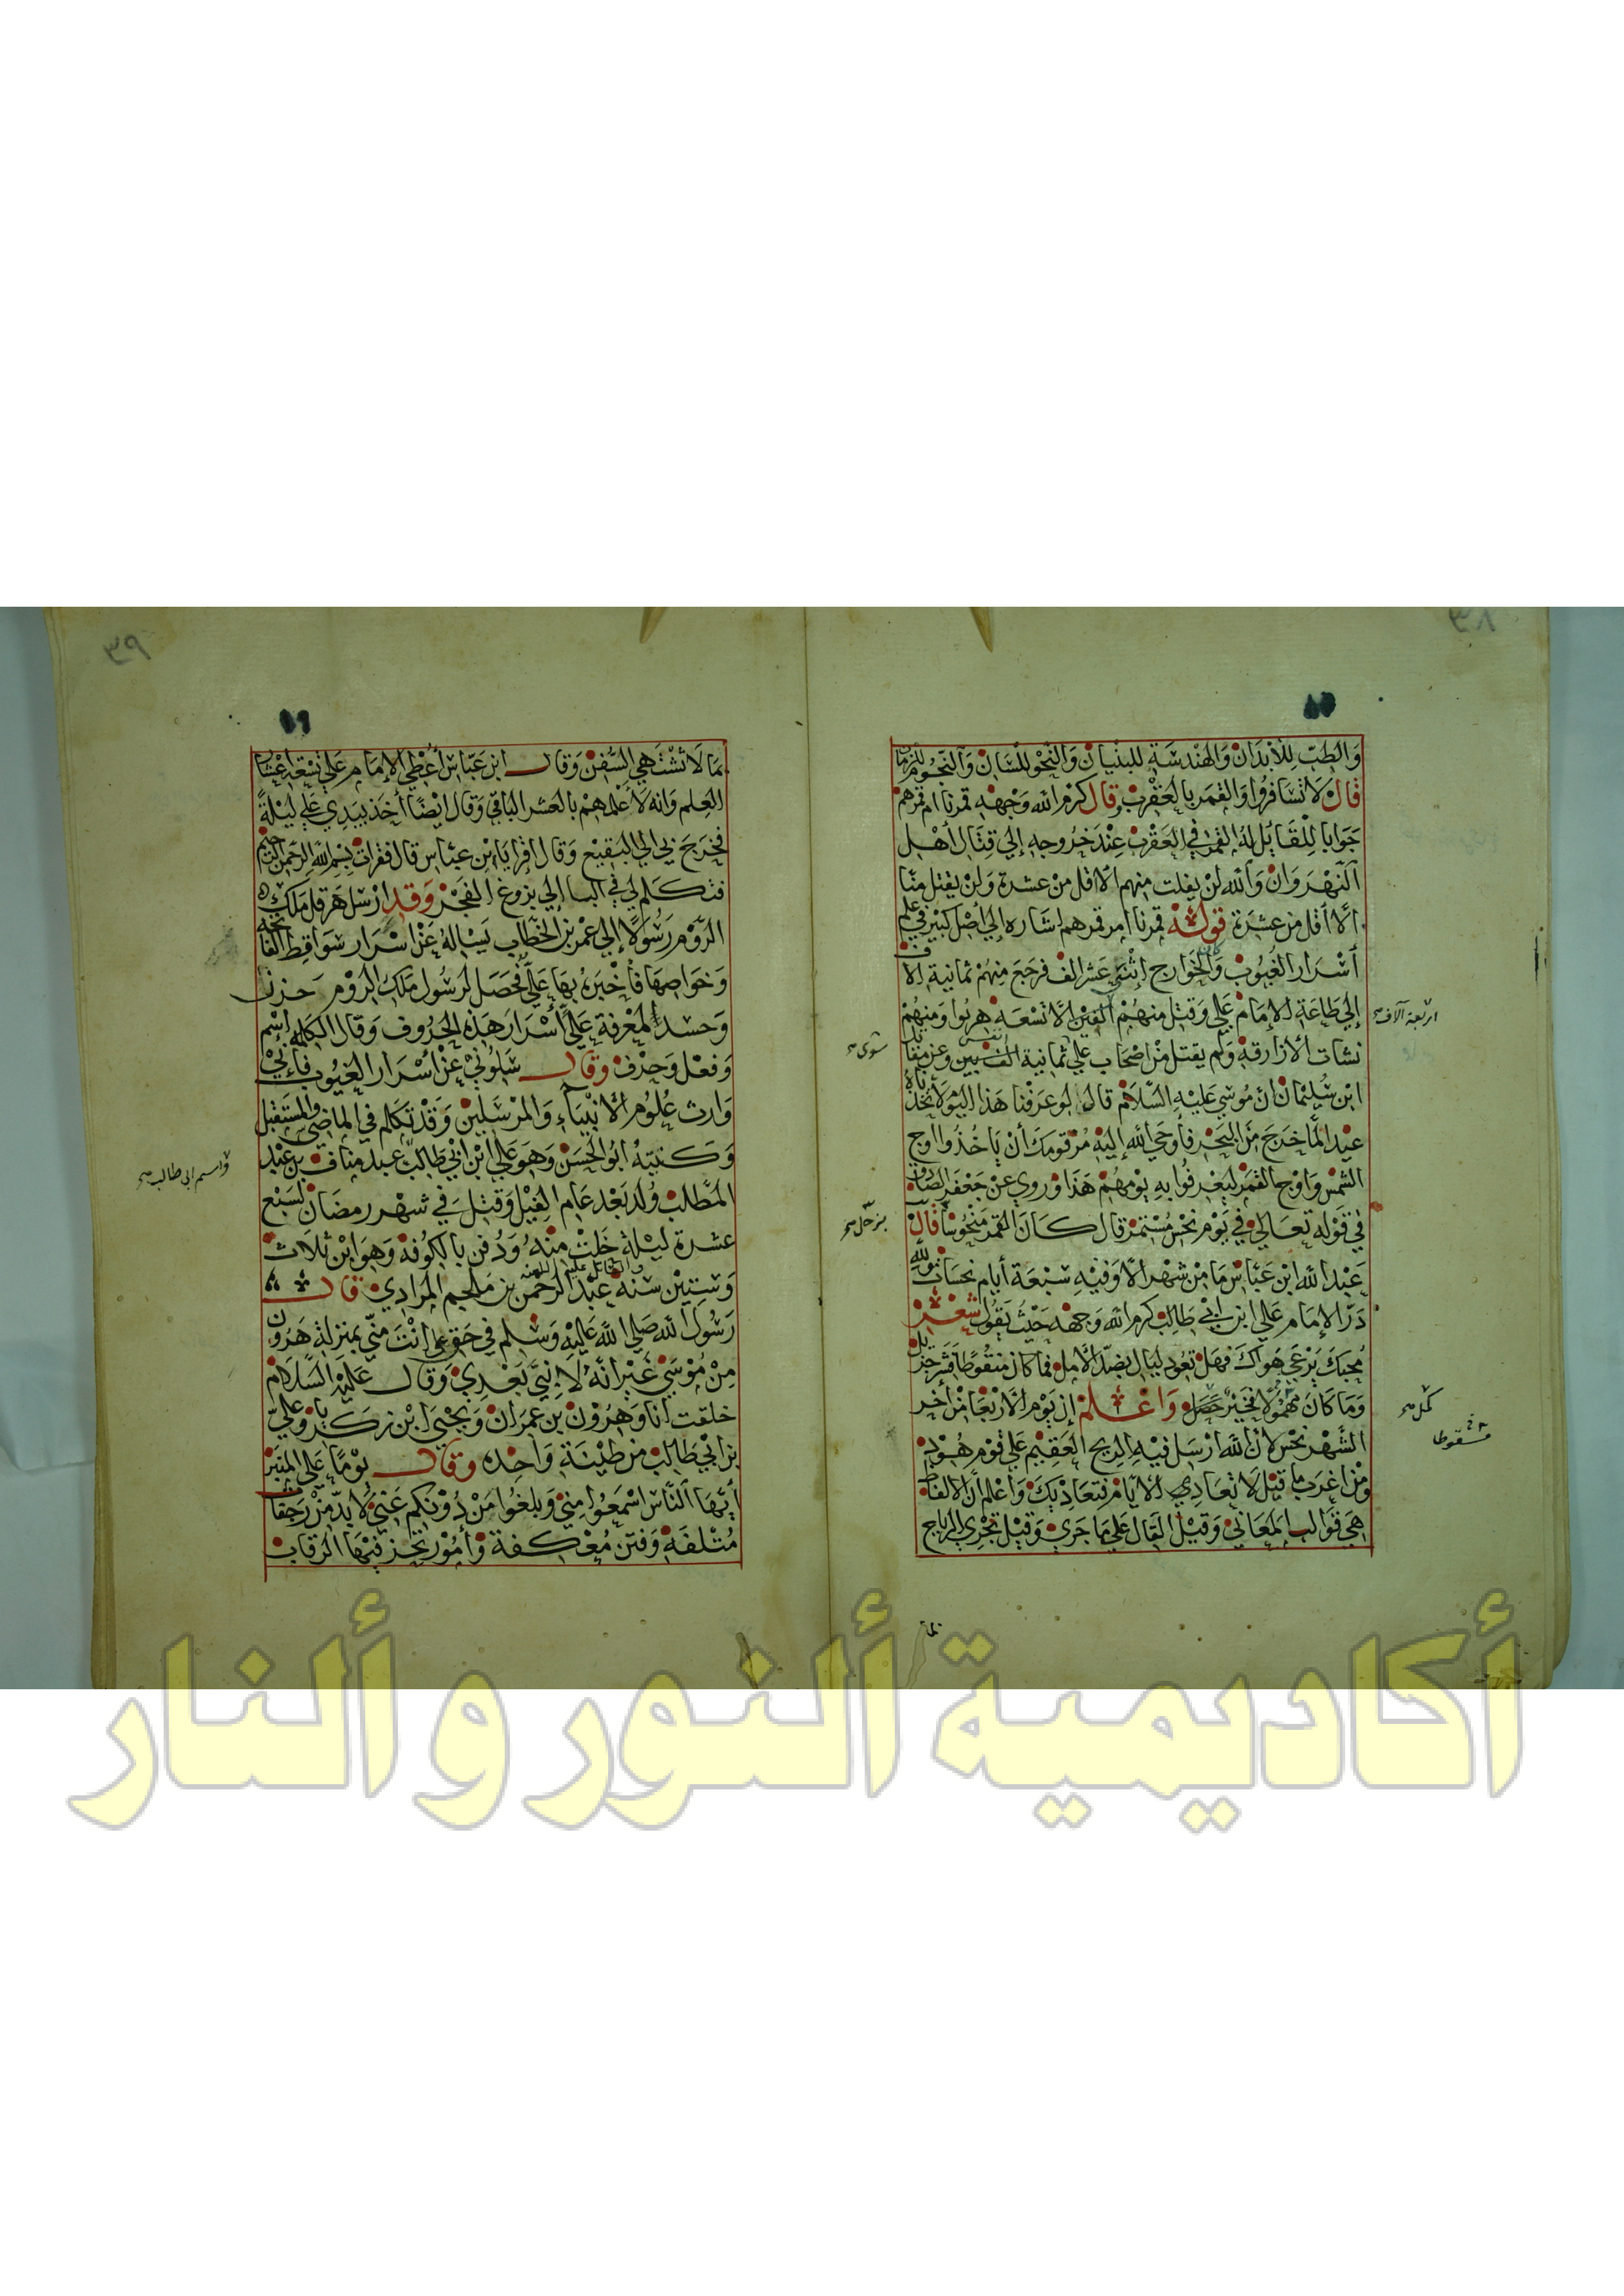 والطب للأبدان والهندسة للبنيان والنحو للسان والنجوم للزمان
قال لا تسافروا والقمر بالعقرب وقال كرم الله وجهه قمرنا ام قمرهم
جوابا للقائل له القمر في العقرب عند خروجه إلي قتال أهل
النهروان والله لن يفلت منهم الا اقل من عشرة ولن يقتل منا
الا أقل من عشرة قوله قمرنا ام قمرهم اشاره إلي أصل كبير في علم
أسرار الغيوب وكان الخوارج إثني عشر الف فرجع منهم ثمانية الاف
إلي طاعة الإمام علي وقتل منهم الفين إلا تسعة هربوا ومنهم
نشات الأزارقه ولم يقتل من اصحاب علي ثمانية
ابن سليمان ان موسي عليه السلام قال لو عرفنا هذا اليوم لاتخذناه
عيدا لما خرج من البحر فأوحي الله إليه مر قومك أن ياخذوا اوج
الشمس واوج القمر ليعرفوا به يومهم هذا وروي عن جعفر الصادق
في قوله تعالي في يوم نحس مستمر قال كان القمر منحوسا قال
عبد الله ابن عباس ما من شهر الا وفيه سبعة أيام نحسات
در الإمام علي ابن ابي طالب كرم الله وجهه حيث يقول شعر
محبك يرعي هواك فهل تعود ليال بضد الأمل فما كان منقوطا
وما كان مهمولا فخير حصل واعلم ان يوم الاربعا من أخر
الشهر نحس لان الله ارسل فيه الريح العقيم علي قوم هود
ومن اغرب ما قيل لا تعادي الأيام فتعاديك واعلم أن الالفاظ
هي قوالب المعاني وقيل الفال علي ما جري وقيل تجري الرياح
اربعة آلاف
بما لا تشتهي السفن وقال ابن عباس أعطي الإمام علي تسعة أعشار
العلم وانه لاعلمهم بالعشر الباقي وقال ايضا أخذ بيدي علي ليلة
فخرج بي الي البقيع وقال اقرا يا ابن عباس قال فقرات بسم الله الرحمن الرحيم
فتكلم لي في البا إلي بزوغ الفجر وقد ارسل هرقل ملك
الروم رسولا إلي عمر بن الخطاب يساله عن اسرار سواقط الفاتحه
وخواصها فأخبره بها علي فحصل لرسول ملك الروم حزن
وحسد المعرفة علي أسرار هذه الحروف وقال الكلام إسم
وفعل وحرف وقال سلوني عن أسرار الغيوب فإني
وارث علوم الأنبياء والمرسلين وقد تكلم في الماضي والمستقبل
وكنيته ابو الحسن وهو علي ابن ابي طالب عبد مناف بن عبد
المطلب ولد بعد عام الفيل وقتل في شهر رمضان لسبع
عشرة ليلة خلت منه ودفن بالكوفة وهو ابن ثلاث
وستين سنة عبد الرحمن بن ملجم المرادي قال
رسول الله صلي الله عليه وسلم في حق علي انت مني بمنزلة هرون
من موسي غير انه لا نبي بعدي وقال عليه السلام
خلقت انا وهرون بن عمران ويحيي ابن زكريا وعلي
بن ابي طالب من طينة واحده وقال يوما علي المنبر
أيها الناس اسمعوا مني وبلغوا من دونكم عني لا بد من
متلفة وفتن معكفة وأمور تحز فيها الرقاب
واسم ابي طالب
أكاديمية ألنور و ألنار